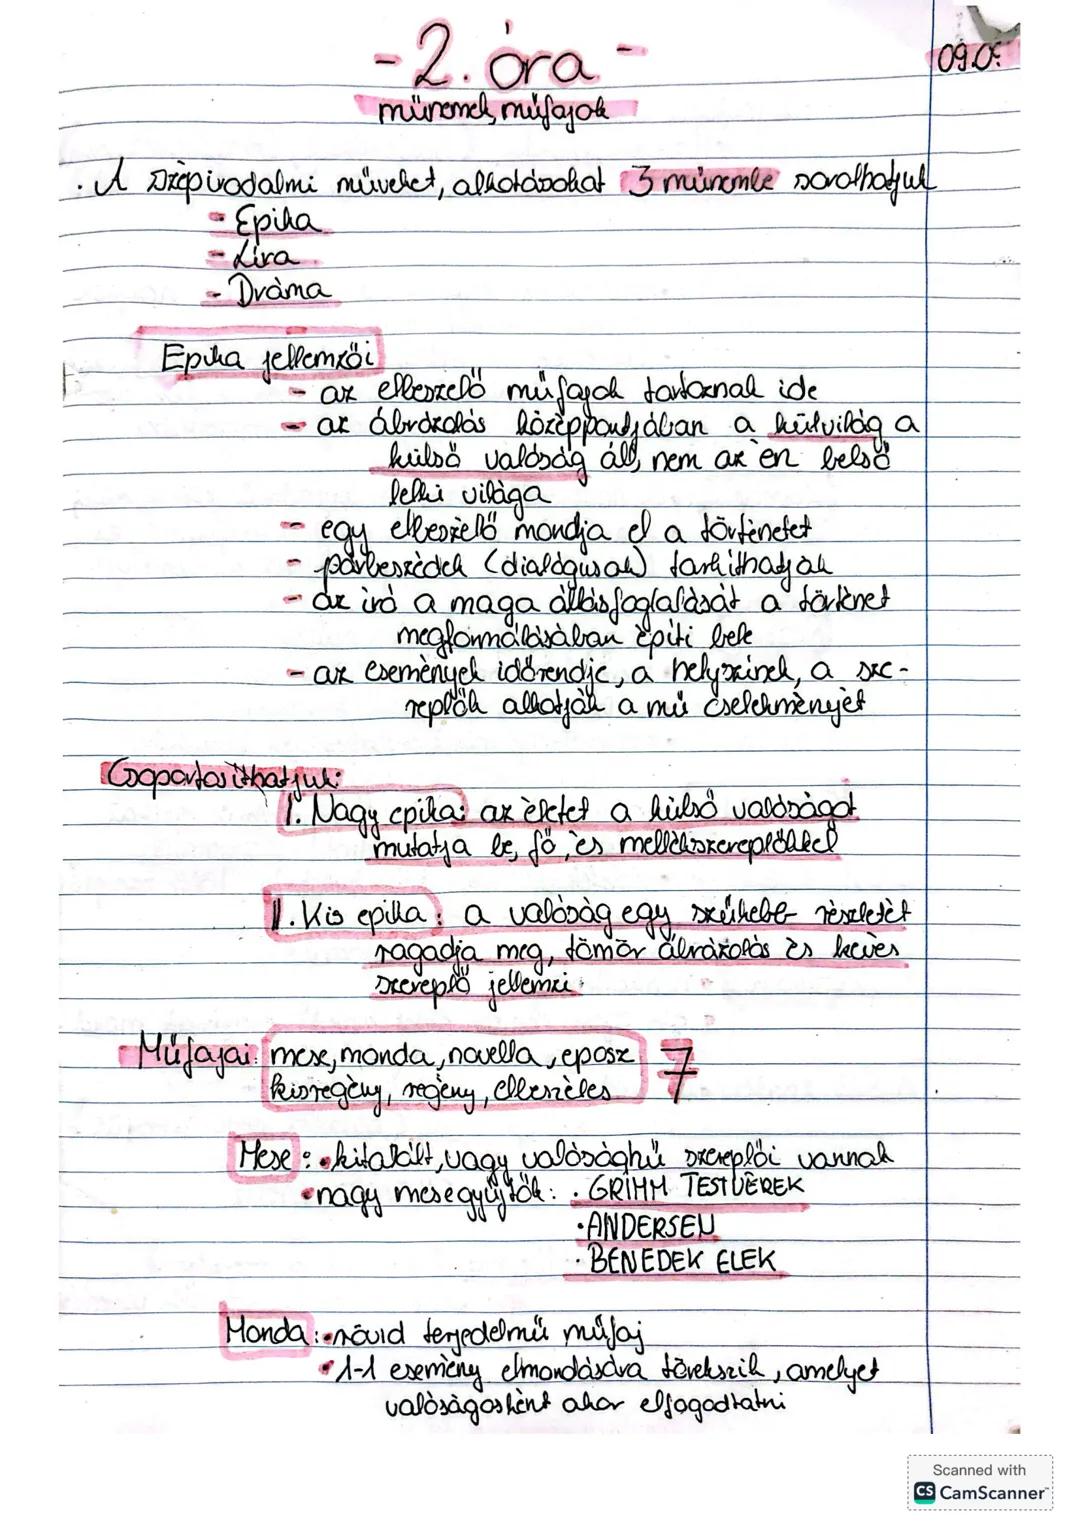 - 2. óra -
09.0
műnemek, műfajok
· A szépirodalmi műveket, alkotásokat 3 műnembe sorolhatjuk
- Epika
- Líra
- Dráma
Epika jellemzői
- az elbeszélő műfajok tartoznak ide
- az ábrázolás középpontjában a külvilág a
külső valóság áll, nem az én belső
lelki világa
- egy elbeszélő mondja el a történetet
- párbeszédek (dialógusok) tarkíthatják
- az író a maga állásfoglalását a történet
megformálásában építi bele
- az események időrendje, a helyszínek, a sze-
replők alkotják a mű cselekményét
Csoportosíthatjuk:
I. Nagy epika: az életet a külső valóságot
mutatja be, fő, és mellékszereplőkkel
II. Kis epika: a valóság egy szűkebb részletét
ragadja meg, tömör ábrázolás és kevés
szereplő jellemzi
Műfajai: mese, monda, novella, eposz
7
kisregény, regény, elbeszélés
Mese: • kitalált, vagy valósághű szereplői vannak
• nagy mesegyűjtők: · GRIMM TESTVÉREK
· ANDERSEN
· BENEDEK ELEK
Monda: • rövid terjedelmű műfaj
• 1-1 esemény elmondására törekszik, amelyet
valóságosként akar elfogadtatni
Scanned with
CS CamScanner